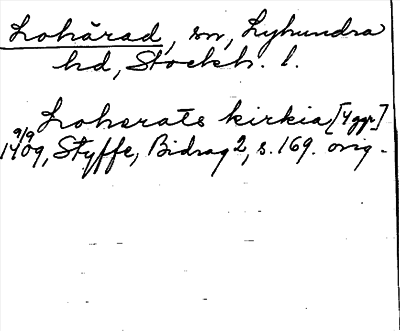 Lohärad, sn, Lyhundra
hd, Stockh. l.
Loherats kirkia [4 ggr]
9/9
1409, Styffe, Bidrag 2, s. 169. orig.